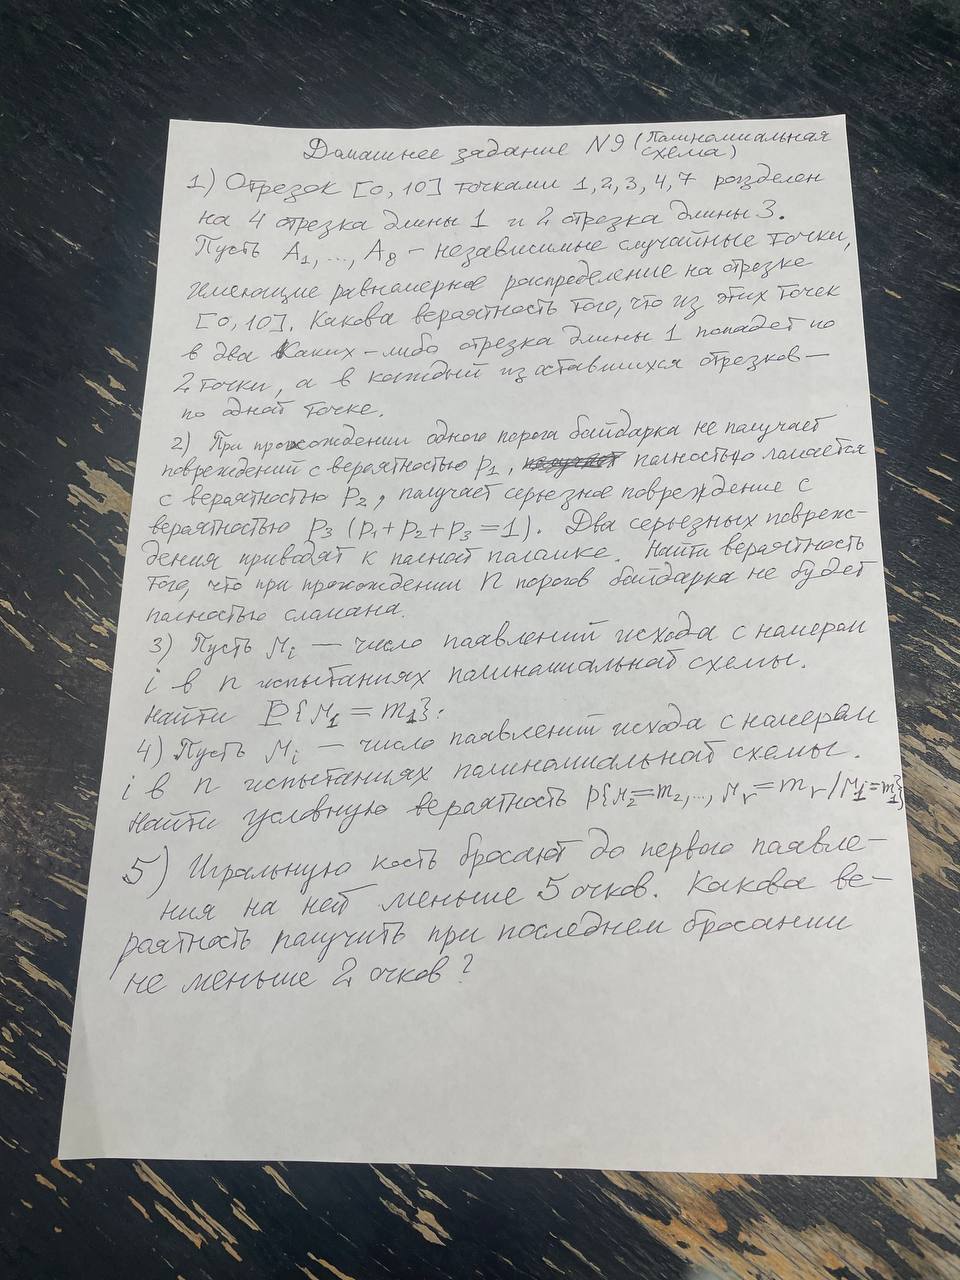 Домашнее задание N9 (Полиномиальная
схема)
1) Отрезок [0, 10] точками 1, 2, 3, 4, 7 разделен
на 4 отрезка длины 1 и 2 отрезка длины 3.
Пусть A₁, ..., A₈ - независимые случайные точки,
имеющие равномерное распределение на отрезке
[0, 10]. Какова вероятность того, что из этих точек
в два каких-либо отрезка длины 1 попадет по
2 точки, а в каждый из оставшихся отрезков —
по одной точке.
2) При прохождении одного порога байдарка не получает
повреждений с вероятностью p₁, полностью ломается
с вероятностью p₂, получает серьезное повреждение с
вероятностью p₃ (p₁ + p₂ + p₃ = 1). Два серьезных повреж-
дения приводят к полной поломке. Найти вероятность
того, что при прохождении n порогов байдарка не будет
полностью сломана.
3) Пусть μᵢ — число появлений исхода с номером
i в n испытаниях полиномиальной схемы.
Найти P{μ₁ = m₁}.
4) Пусть μᵢ — число появлений исхода с номером
i в n испытаниях полиномиальной схемы.
Найти условную вероятность P{μ₂=m₂, ..., μᵣ=mᵣ/μ₁=m₁}
5) Игральную кость бросают до первого появле-
ния на ней меньше 5 очков. Какова ве-
роятность получить при последнем бросании
не меньше 2 очков?